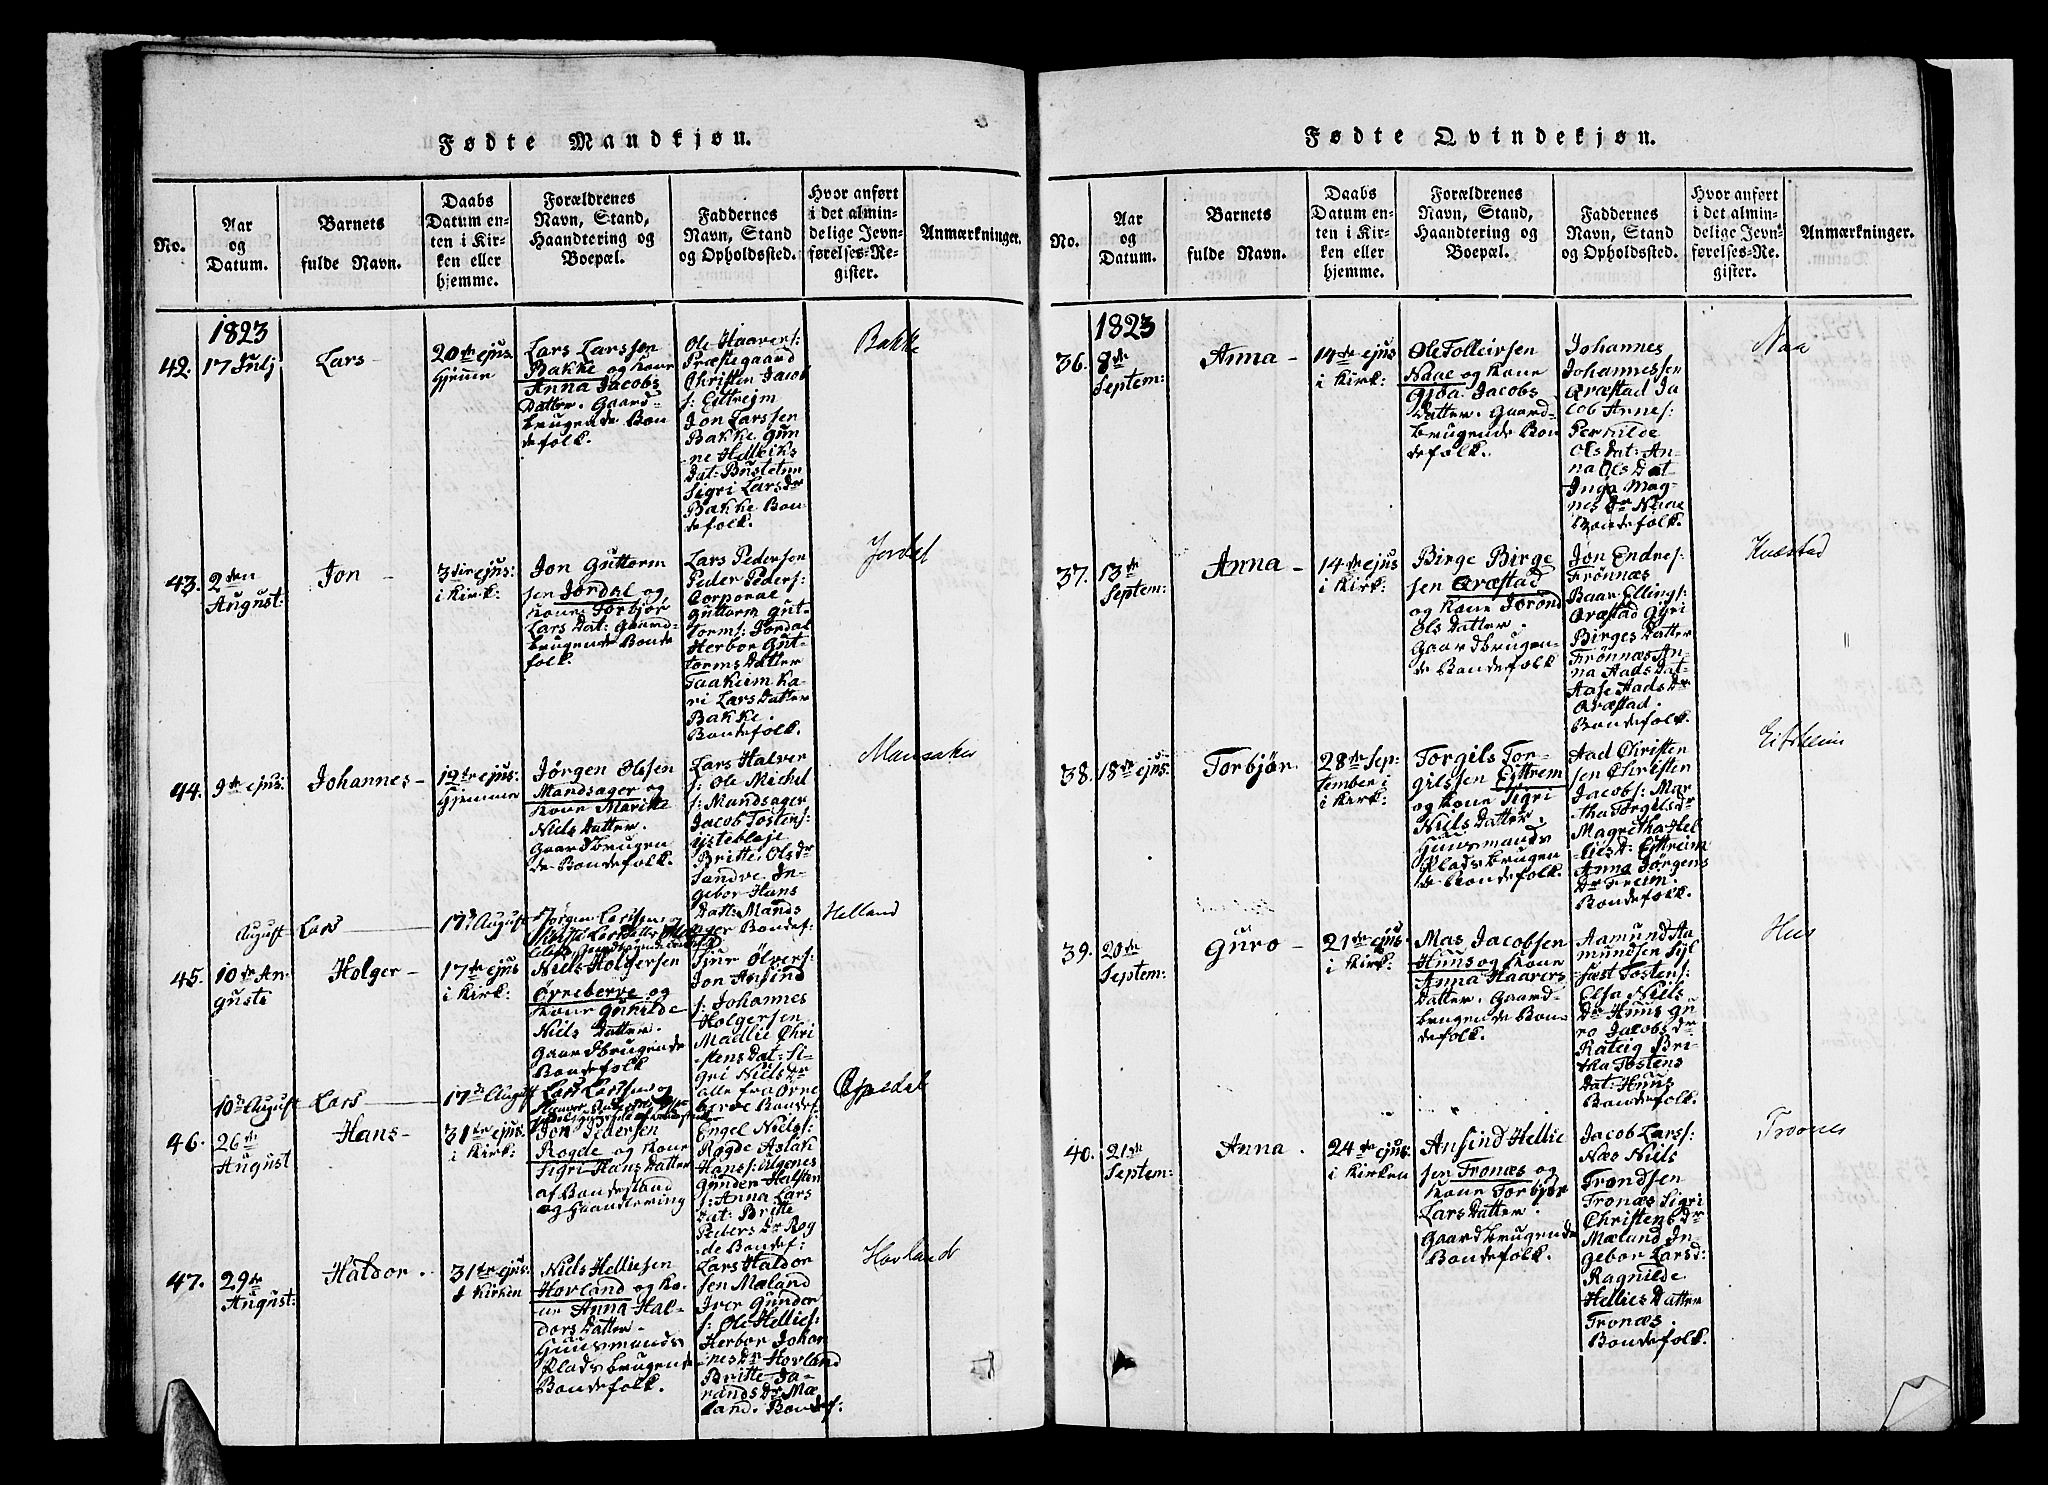 Fødte Mandkjøn.
No.
Aar
og
Datum.
Barnets
fulde Navn.
Daabs
Datum en-
ten i Kir-
ken eller
hjemme.
Forældrenes
Navn, Stand,
Haandtering og
Boepæl.
Faddernes
Navn, Stand
og Opholdssted.
Hvor anført
i det almin-
delige Jevn-
førelses-Re-
gister.
Anmærkninger.
1823
42.
17 Julj
Lars
20de ejus.
Hjemme
Lars Larssøn
Bakke og Kone
Anna Jacobs
Datter. Gaard-
brugende Bon
defolk.
Ole Haavers:
Præstegaard
Christen Jacob
s: Eittrejm
Jon Larssen
Bakke Gun
ne Helleiks
Dat: Bustetun
Sigri Larsdr
Bakke Bon-
defolk.
Bakke
43.
2den
August:
Jon
31de ejus:
i Kirk:
Jon Guttorm
sen Jordal og
Kone Torbjør
Lars Dat: Gaard-
brugende Bonde
folk.
Lars Pedersen
Peder Peders:
Corporal
Guttorm Gut-
torms: Jordal
Herbor Gut-
torms Datter
Ka-
ri Lars Datter
Bakke.
Bondefolk.
Jordal
44.
9de ejus.
Johannes
12te ejus:
Hjemme
Jørgen Olssen
Mandsager og
Kone Marithe
Niels Datter.
Gaardbrugen
de Bondefolk.
Lars Halver
s: Ole Michel
s: Mandsager
Jacob Tostens:
Ystebløje
Britte Ols dr
Sandve In-
gebor Hans
Datt: Mands
ager Bondef:
Mansaker
August
Lars
17de August
Jørgen Larssen og
Helland
45.
10de Au-
guste
Holger
17de ejus
i Kirk:
Niels Holgersen
Ørneberve og
Kone Gunilde
Niels Datter.
Gaardbrugende
Bondefolk
Siur Ølvers:
Jon Ansind
s: Johannes
Holgersen
Madlie Chri
stens Dat: Si-
gri Niels Dr
alle fra Ørne
berve Bondef:
10de August
Lars
17de August
Lars Larssen og
Opedal
46.
26de
August
Hans
31te ejus.
i Kirk:
Jon Pedersen
Rogde og Kone
Sigri Hans Datter
af Bondestand
og Haandtering
Engel Niels:
Rogde Aslak
Hanss:
Gunder Halstan
s: Anna Lars
Dat: Britte
Peders Dr Rog
de Bondef:
47.
29de
August:
Haldor
31te ejus:
i Kirken
Niels Helliesen
Hovland og Ko-
ne Anna Hal-
dors Datter
Huusmands
Plads brugende
Bondefolk.
Lars Haldor
sen Mæland
Iver Gunder
s: Ole Hellies:
Herbor Johan
nes Dr Hovland
Britte Ja-
rands Dr Mæ
land. Bondef:
Hovland
Fødte Qvindekjøn.
No.
Aar
og
Datum.
Barnets
fulde Navn.
Daabs
Datum en-
ten i Kir-
ken eller
hjemme.
Forældrenes
Navn, Stand,
Haandtering og
Boepæl.
Faddernes
Navn, Stand
og Opholdssted.
Hvor anført
i det almin-
delige Jevn-
førelses-Re-
gister.
Anmærkninger.
1823
36.
8de
Septem:
Anna
14de ejus
i Kirk:
Ole Tolleivsen
Naae og Kone
Gjöa Jacobs
Datter. Gaard-
brugende Bon
defolk.
Johannes
Johannessen
Qvæstad Ja
cob Arnes:
Pernilde
Olsdat: An-
na Ols Dat
Inga Mag-
nes Dr Naae
Bondefolk.
Naa
37.
13de
Septem:
Anna
14de ejus
i Kirk:
Birge Birge
sen Qvæstad
og Kone Jorøn
Ols Datter.
Gaardbrugen-
de Bondefolk
Jon Endres:
Frønnæs
Baar Ellings:
Qvæstad Gyri
Birges Datter
Frønnæs An-
na Aads Dat-
Aase Aads Dr
Qvæstad.
Bondefolk.
Kvæstad
38.
18de ejus.
Torbjør
28de Sep-
tember i
i Kirk:
Torgils Tor-
gilssen Eyttrem
og Kone Sigri
Niels Datter.
Huusmands
Plads brugen
de Bondefolk.
Aad Christen
sen Christen
Jacobs: Mar-
tha Torgilsdr
Magretha Hel
lies D: Eyttreim
Anna Jørgens
Dr Freim.
Bondefolk.
Eitrheim
39.
20de
Septem:
Guro
21de ejus:
i Kirk:
Mas Jacobsen
Huus og Kone
Anna Haavers
Datter. Gaard-
brugende Bon-
defolk.
Aamund Aa
mundsen Syl
fæst Tostens:
Elsa Niels
Dr Huus Gu
ro Jacobs dr
Rateig Bri-
tha Tostens
Dat: Huus
Bondefolk.
Hus
40.
21de
Septem:
Anna
24de ejus:
i Kirken
Ansind Hellie
sen Tronæs og
Kone Torbjør
Lars Datter.
Gaardbrugende
Bondefolk.
Jacob Larss:
Næs Niels
Trondsen
Tronæs Sigri
Christens dr
Mæland In-
gebor Larsd:
Ragnilde
Hellies Datter
Tronæs.
Bondefolk.
Trones